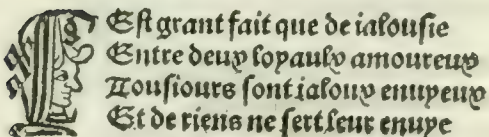 Est grant fait que de ialousie
Entre deux loyaulx amoureux
Tousiours sont ialoux enuyeux
Et de riens ne sert leur enuye